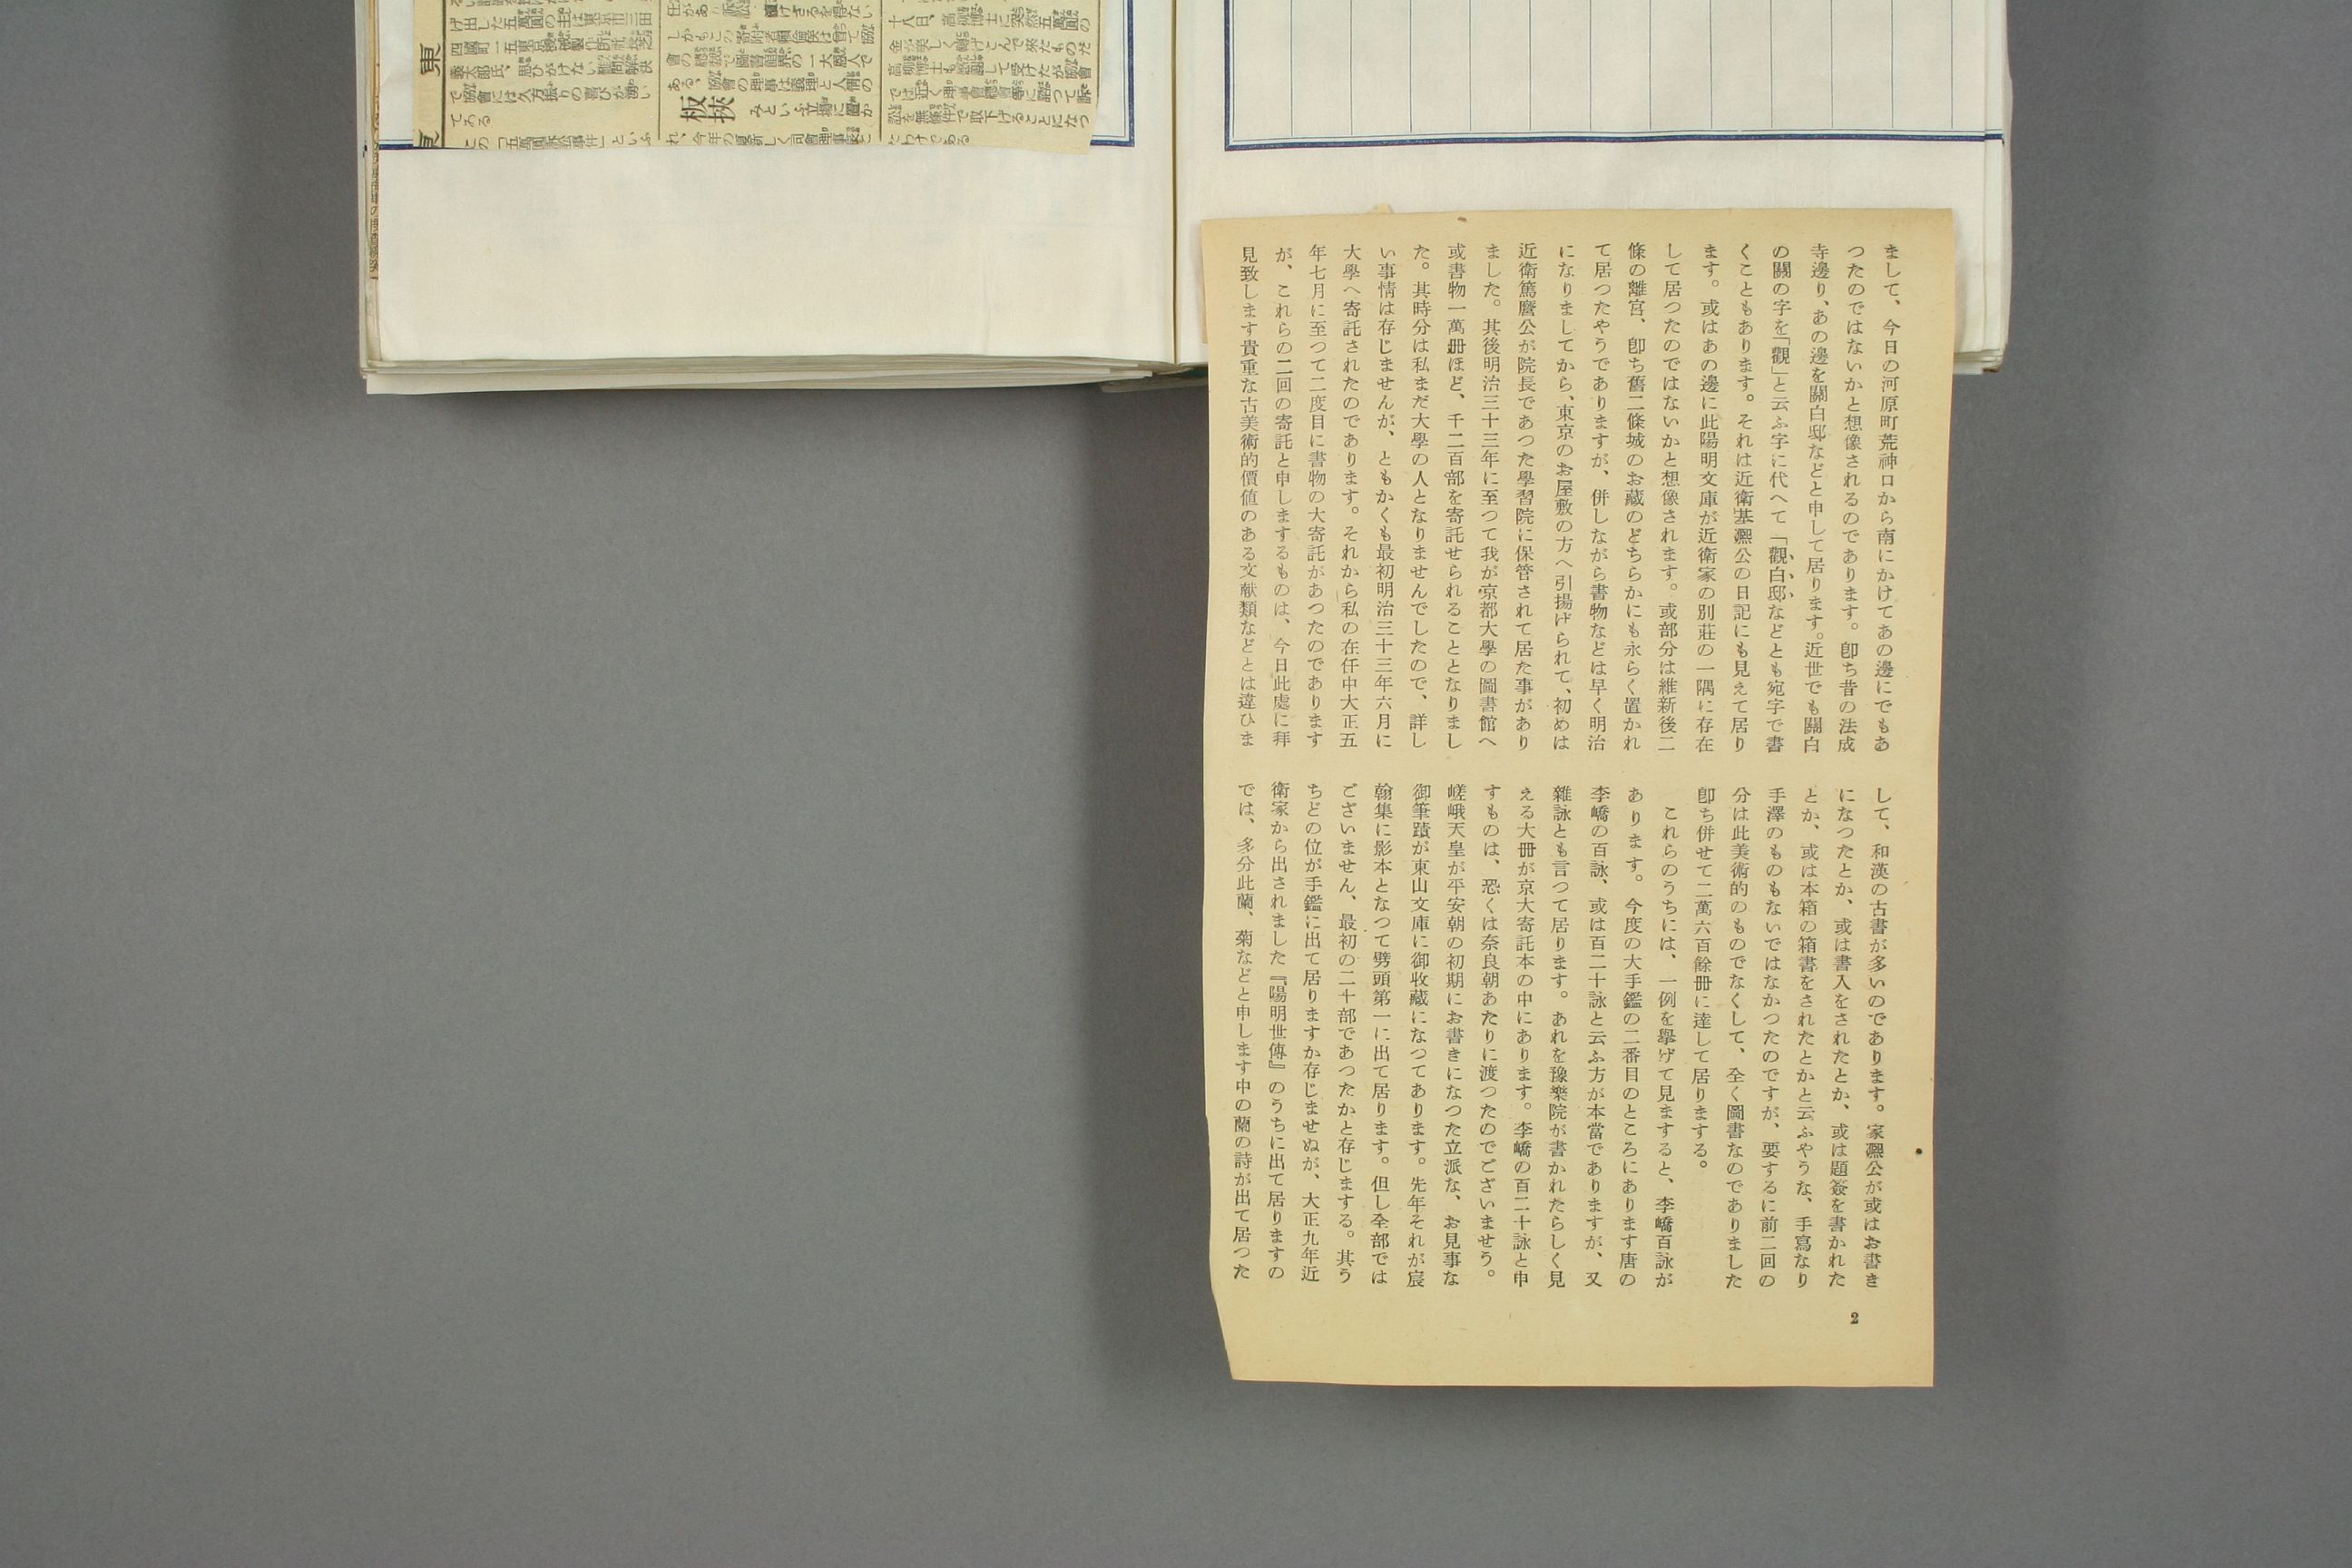 まして、今日の河原町荒神口から南にかけてあの邊にでもあ
つたのではないかと想像されるのであります。卽ち昔の法成
寺邊り、あの邊を關白邸などと申して居ります。近世でも關白
の關の字を「觀」と云ふ字に代へて「觀白邸などとも宛字で書
くこともあります。それは近衛基凞公の日記にも見えて居り
ます。或はあの邊に此陽明文庫が近衛家の別莊の一隅に存在
して居つたのではないかと想像されます。或部分は維新後二
條の離宮、卽ち舊二條城のお藏のどちらかにも永らく置かれ
て居つたやうでありますが、併しながら書物などは早く明治
になりましてから、東京のお屋敷の方へ引揚げられて、初めは
近衛篤麿公が院長であつた學習院に保管されて居た事があり
ました。其後明治三十三年に至つて我が京都大學の圖書館へ
或書物一萬册ほど、千二百部を寄託せられることとなりまし
た。其時分は私まだ大學の人となりませんでしたので、詳し
い事情は存じませんが、ともかくも最初明治三十三年六月に
大學へ寄託されたのであります。それから私の在任中大正五
年七月に至つて二度目に書物の大寄託があつたのであります
が、これらの二回の寄託と申しまするものは、今日此處に拜
見致します貴重な古美術的價値のある文献類などとは違ひま
して、和漢の古書が多いのであります。家凞公が或はお書き
になつたとか、或は書入をされたとか、或は題簽を書かれた
とか、或は本箱の箱書をされたとかと云ふやうな、手寫なり
手澤のものもないではなかつたのですが、要するに前二回の
分は此美術的のものでなくして、全く圖書なのでありました
卽ち併せて二萬六百餘冊に達して居りまする。
これらのうちには、一例を擧げて見ますると、李嶠百詠が
あります。今度の大手鑑の二番目のところにあります唐の
李嶠の百詠、或は百二十詠と云ふ方が本當でありますが、又
雜詠とも言つて居ります。あれを豫樂院が書かれたらしく見
える大冊が京大寄託本の中にあります。李嶠の百二十詠と申
すものは、恐くは奈良朝あたりに渡つたのでございませう。
嵯峨天皇が平安朝の初期にお書きになつた立派な、お見事な
御筆蹟が東山文庫に御收藏になつてあります。先年それが宸
翰集に影本となつて劈頭第一に出て居ります。但し全部では
ございません、最初の二十部であつたかと存じまする。其う
ちどの位が手鑑に出て居りますか存じませぬが、大正九年近
衛家から出されました『陽明世傳』のうちに出て居りますの
では、多分此蘭、菊などと申します中の蘭の詩が出て居つた
2
東
げ出した五萬圓の主は東京市三田
四國町一五東京機械製作所社長芝
義太郎氏、思ひがけない難問解決
で協會には久方振りの喜びが湧い
てゐる
この「五萬圓訴訟事件」といふ
しかもこの寄附者賴倫侯は曾て協
會の總裁で圖書館界の一大恩人で
ある、協會の理事は義理と人情の
板挾
みといふ立場に置か
れ、今年の夏新しく司會理事とに
十八日、高柳博士に突然五萬圓の
金が美しく轉げとんで來たものだ
高柳博士も感謝して受けたが協會
では近く理事會總會等に諮つて訴
訟を無條件で取下げることになつ
たわけである